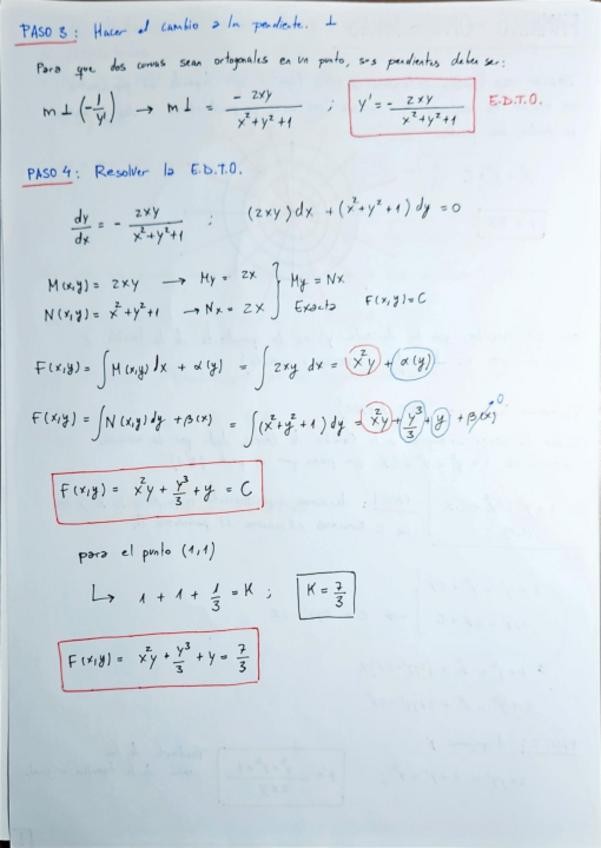 PASO 3: Hacer el cambio a la pendiente. ⊥
Para que dos curvas sean ortogonales en un punto, sus pendientes deben ser:
m⊥ (-1/y') → m⊥ = -2xy/(x²+y²+1) ; y' = - 2xy/(x²+y²+1) E.D.T.O.
PASO 4: Resolver la E.D.T.O.
dy/dx = - 2xy/(x²+y²+1) ; (2xy)dx + (x²+y²+1)dy = 0
M(x,y) = 2xy → My = 2x } My = Nx
N(x,y) = x²+y²+1 → Nx = 2x Exacta F(x,y)=C
F(x,y) = ∫M(x,y)dx + α(y) = ∫2xy dx = x²y + α(y)
F(x,y) = ∫N(x,y)dy + β(x) = ∫(x²+y²+1)dy = x²y + y³/3 + y + β(x) 0
F(x,y) = x²y + y³/3 + y = C
para el punto (1,1)
↳ 1 + 1 + 1/3 = K ; K = 7/3
F(x,y) = x²y + y³/3 + y = 7/3